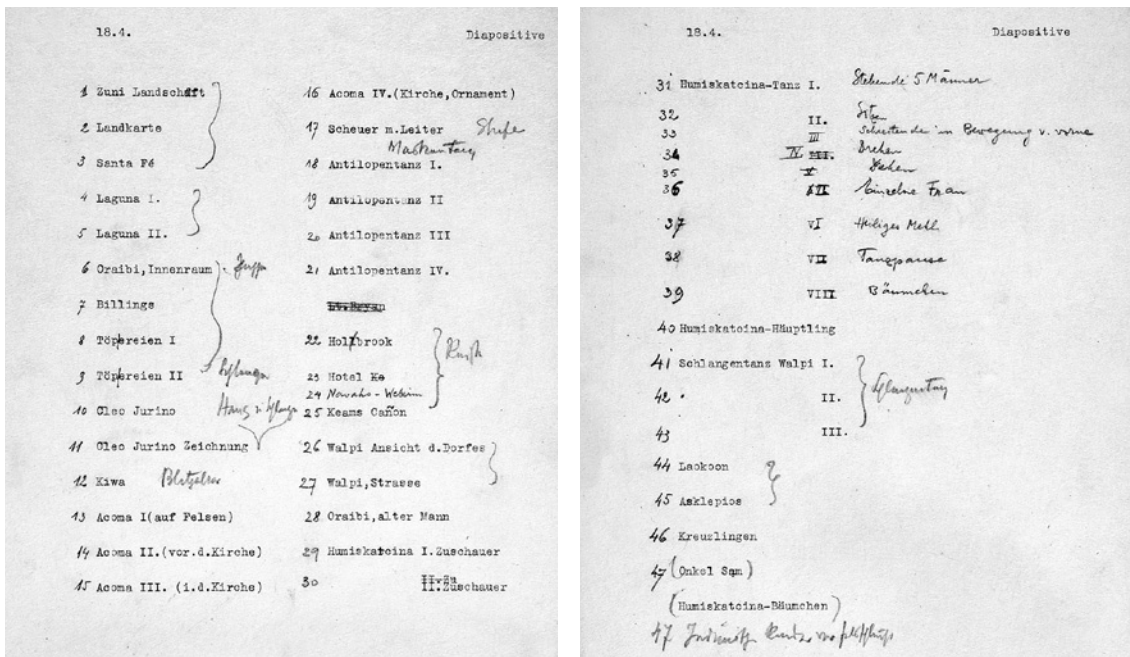 18.4.
Diapositive
1 Zuni Landschaft
2 Landkarte
3 Santa Fé
4 Laguna I.
5 Laguna II.
6 Oraibi,Innenraum
7 Billings
8 Töpereien I
9 Töpereien II
10 Cleo Jurino
11 Cleo Jurino Zeichnung
12 Kiwa
13 Acoma I(auf Felsen)
14 Acoma II.(vor.d.Kirche)
15 Acoma III. (i.d.Kirche)
16 Acoma IV.(Kirche,Ornament)
17 Scheuer m.Leiter
Maskentanz
18 Antilopentanz I.
19 Antilopentanz II
20 Antilopentanz III
21 Antilopentanz IV.
22 Holbrook
23 Hotel
24
25 Keams Cañon
26 Walpi Ansicht d.Dorfes
27 Walpi,Strasse
28 Oraibi,alter Mann
29 Humiskatcina I.Zuschauer
30 II.Zuschauer
18.4.
Diapositive
31 Humiskatcina-Tanz I. Stehende 5 Männer
32 II.
33 III in Bewegung v. vorne
34 IV Drehen
35 V
36 Einzelne Frau
37 VI Heiliges Mehl
38 VII Tanzpause
39 VIII Bäumchen
40 Humiskatcina-Häuptling
41 Schlangentanz Walpi I.
42 " II.
43 III.
44 Laokoon
45 Asklepios
46 Kreuzlingen
47 (Onkel Sam)
(Humiskatcina-Bäumchen)
47